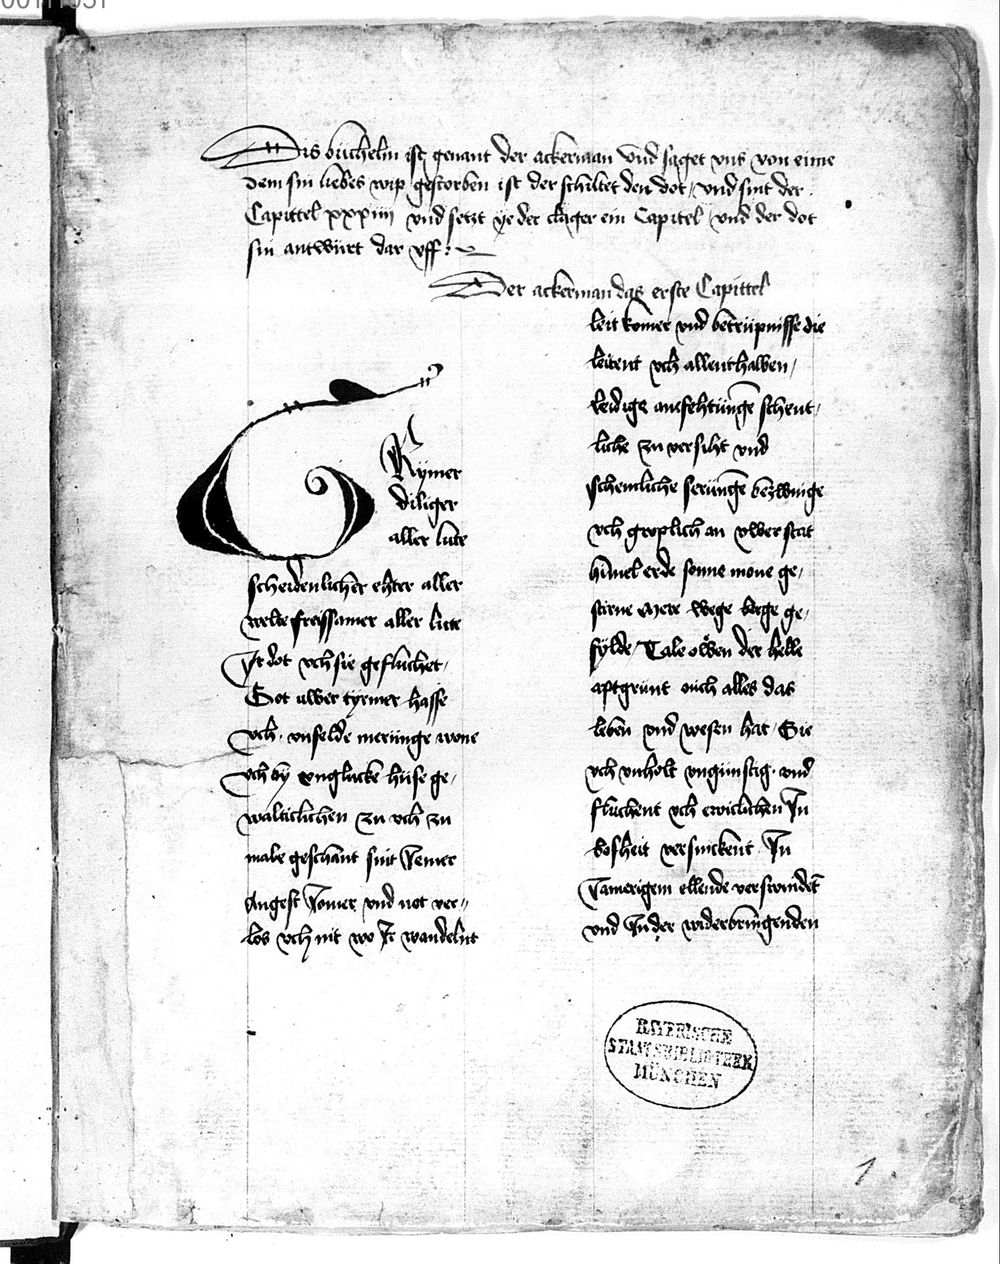 Dis buchelin ist genant der ackerman vnd saget vns von eime
dem sin liebes wip gestorben ist der schiltet den dot / vnd sint der
Capittel xxxiiij vnd setzt ye der clager ein Capitel vnd der dot
sin antwürt dar vff :~
Der ackerman das erste Capittel
GRymer
diliger
aller lute
scheidenlicher ehter aller
welte freissamer aller lute
Ir dot vch sie gefluchet /
Got uwer tyrmer hasse
vch · vnselde merunge wone
vch by vnglucke huse ge /
walticlichen zu vch zu
male geschant sint Iemer
Angest Iomer vnd not ver //
los vch nit wo Ir wandelnt
leit komer vnd betrüpnisse die
leitent vch allenthalben /
leidige anfehtünge schent /
liche zu versiht vnd
schemliche serünge bezwinge
vch groplich an vwer stat
himel erde sonne mone ge /
stirne mere wege berge ge /
fylde / Tale owen der helle
aptgrunt ouch alles das
leben vnd wesen hat / Sie
vch vnholt vngunstig · vnd
fluchent vch ewiclichen In
bosheit versinckent / In
Iamerigem ellende verswindet
vnd In der widerbringenden
BAYERISCHE
STAATSBIBLIOTHEK
MÜNCHEN
1